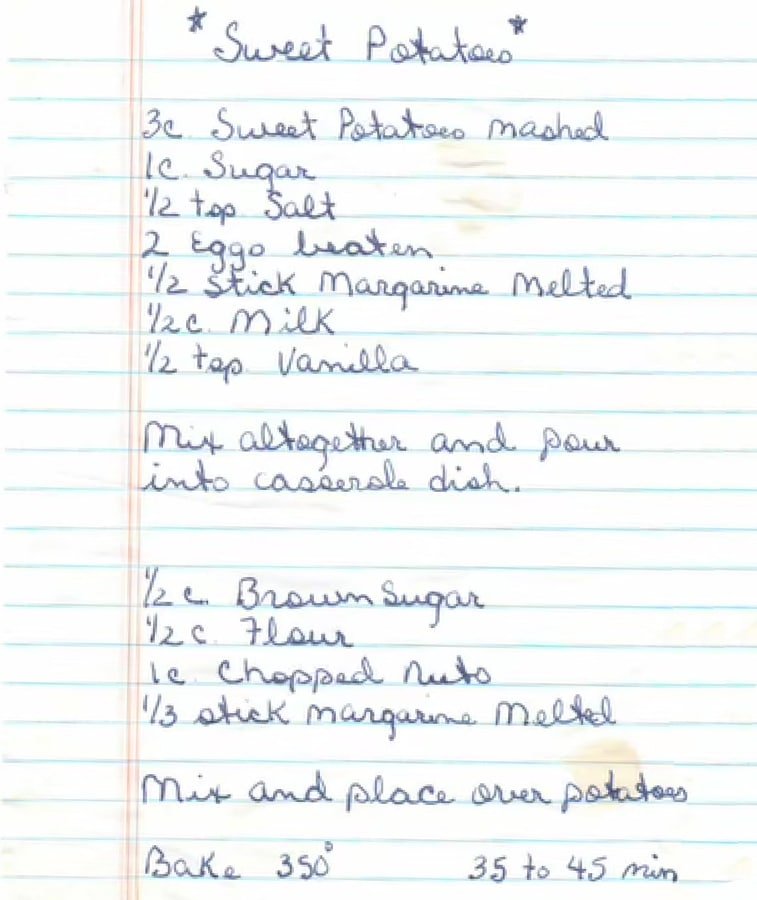 *Sweet Potatoes*
3c. Sweet Potatoes mashed
1c. Sugar
1/2 tsp Salt
2 Eggs beaten
1/2 stick Margarine Melted
1/2 c. Milk
1/2 tsp Vanilla
Mix altogether and pour
into casserole dish.
1/2 c. Brown Sugar
1/2 c. Flour
1c. Chopped Nuts
1/3 stick margarine Melted
Mix and place over potatoes
Bake 350° 35 to 45 min